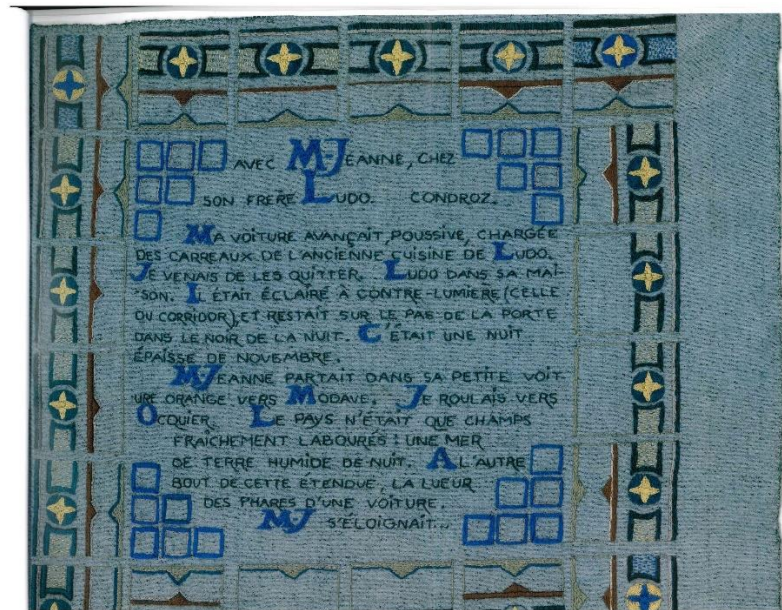 AVEC M-JEANNE, CHEZ
SON FRERE LUDO. CONDROZ.
MA VOITURE AVANÇAIT, POUSSIVE, CHARGÉE
DES CARREAUX DE L'ANCIENNE CUISINE DE LUDO.
JE VENAIS DE LES QUITTER. LUDO DANS SA MAI
SON. IL ÉTAIT ÉCLAIRÉ À CONTRE-LUMIERE (CELLE
DU CORRIDOR), ET RESTAIT SUR LE PAS DE LA PORTE
DANS LE NOIR DE LA NUIT. C'ÉTAIT UNE NUIT
ÉPAISSE DE NOVEMBRE.
M-JEANNE PARTAIT DANS SA PETITE VOIT
URE ORANGE VERS MODAVE. JE ROULAIS VERS
OCQUIER. LE PAYS N'ÉTAIT QUE CHAMPS
FRAÎCHEMENT LABOURÉS : UNE MER
DE TERRE HUMIDE DE NUIT. A L'AUTRE
BOUT DE CETTE ÉTENDUE, LA LUEUR
DES PHARES D'UNE VOITURE.
M-J S'ÉLOIGNAIT...